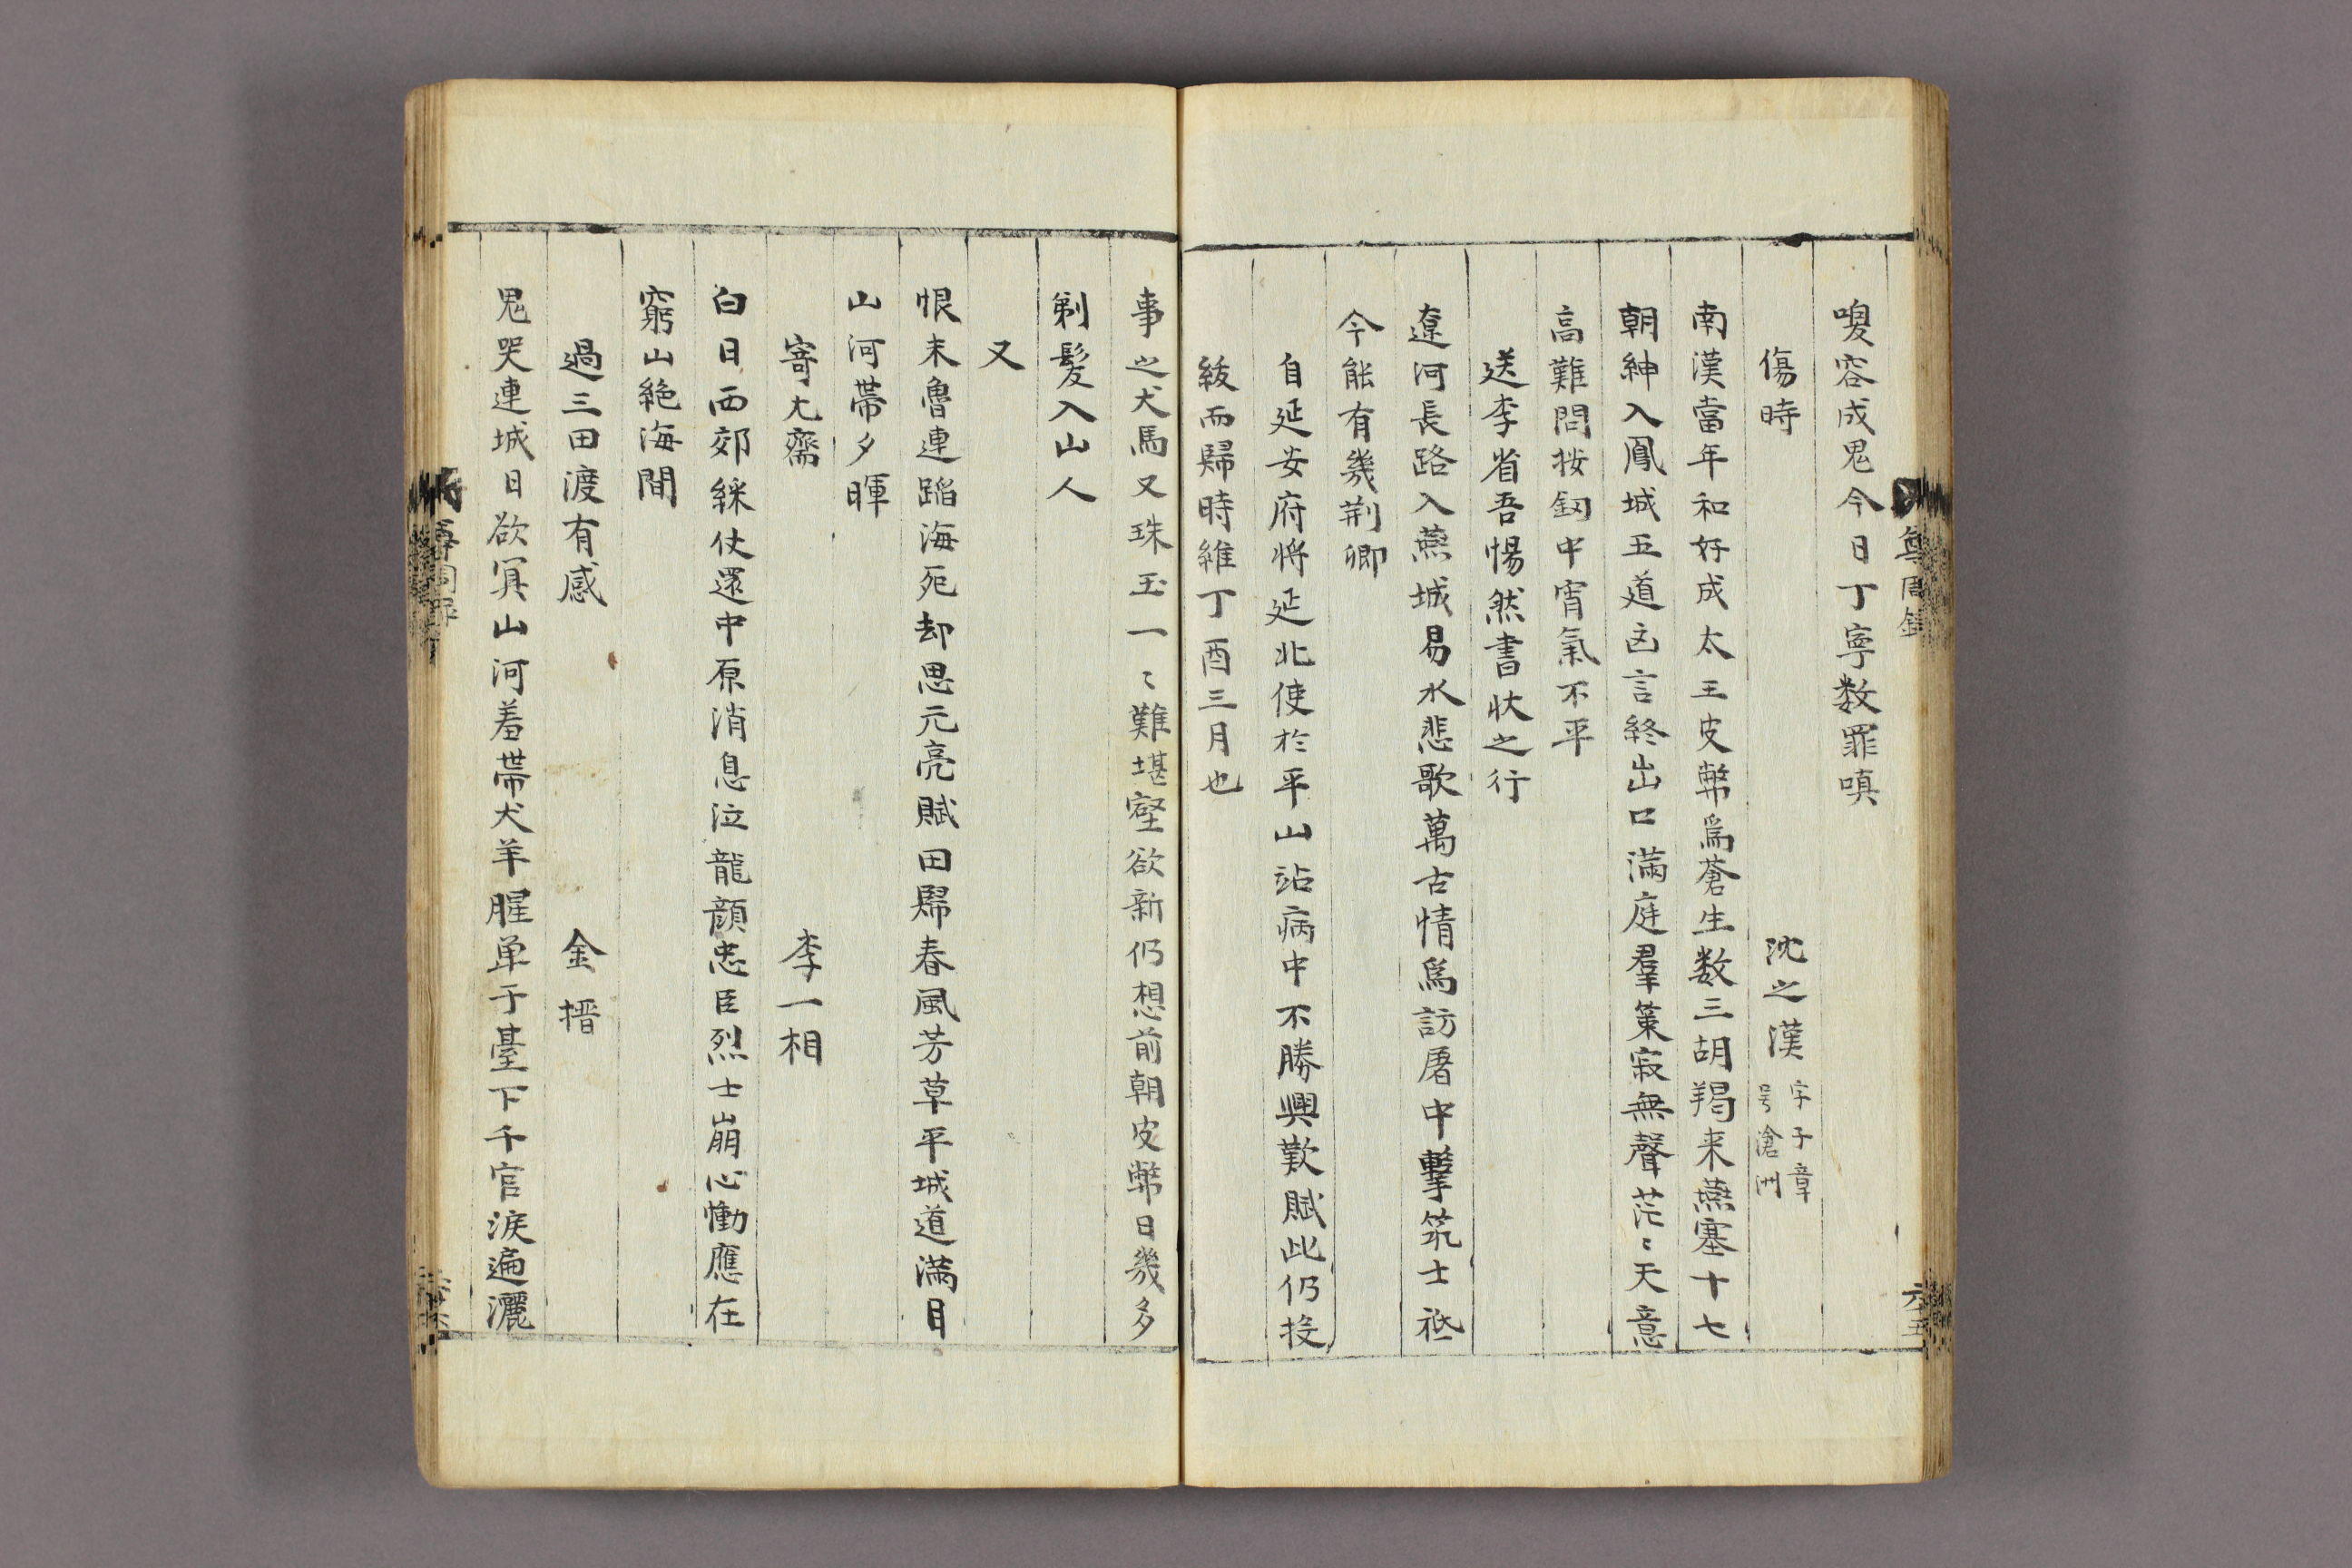 尊周錄
六五
嗄容成鬼今日丁寧数罪嗔
傷時 沈之漢 字子章 号滄洲
南漢當年和好成太王皮幣爲蒼生数三胡羯来燕塞十七
朝紳入鳳城五道凶言終出口滿庭羣策寂無聲茫〻天意
高難問按釼中宵氣不平
送李省吾愓然書狀之行
遼河長路入燕城易水悲歌萬古情爲訪屠中擊筑士祗
今能有幾荆卿
自延安府將延北使於平山站病中不勝興歎賦此仍投
紱而歸時維丁酉三月也
事之犬馬又珠玉一〻難堪壑欲新仍想前朝皮幣日幾多
剃髪入山人
又
恨未魯連蹈海死却思元亮賦田歸春風芳草平城道滿目
山河帶夕暉
寄尤齋 李一相
白日西郊綵仗還中原消息泣龍顔忠臣烈士崩心慟應在
窮山絶海間
過三田渡有感 金搢
鬼哭連城日欲冥山河羞帶犬羊腥单于臺下千官淚遍灑